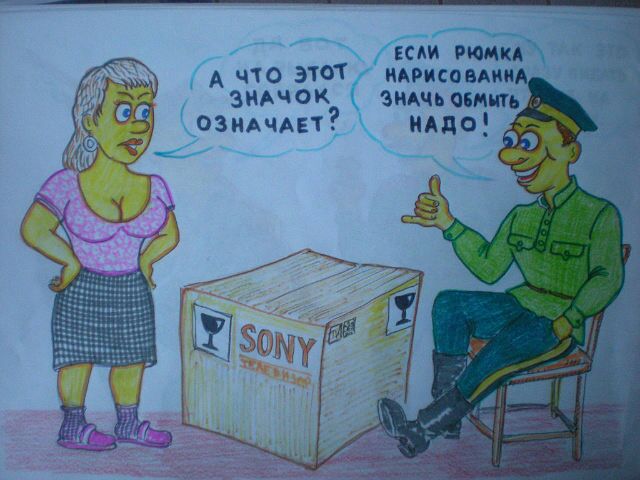 А ЧТО ЭТОТ
ЗНАЧОК
ОЗНАЧАЕТ?
ЕСЛИ РЮМКА
НАРИСОВАННА,
ЗНАЧЬ ОБМЫТЬ
НАДО!
SONY
ТЕЛЕВИЗОР